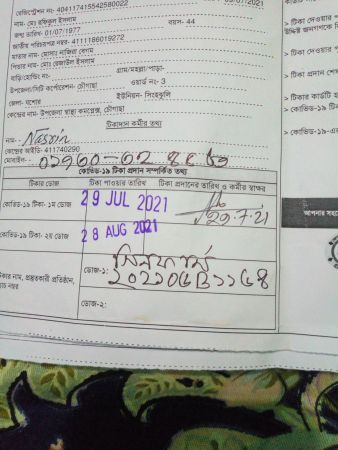 রেজিস্ট্রেশন নং: 4041174155425800​22
নাম - মোঃ রফিকুল ইসলাম
বয়স- 44
জন্ম তারিখ- 01/07/1977
জাতীয় পরিচয়পত্র নম্বর- 4111186019272
মাতার নাম-
পিতার নাম- মোঃ রেজাউল ইসলাম
বাড়ি/হোল্ডিং নং:
গ্রাম/মহল্লা/পাড়া-
উপজেলা/সিটি কর্পোরেশন- চৌগাছা
ওয়ার্ড নং- 3
জেলা- যশোর
ইউনিয়ন- সিংহঝুলি
কেন্দ্রের নাম- উপজেলা স্বাস্থ্য কমপ্লেক্স, চৌগাছা
টিকাদান কর্মীর তথ্য
নাম- Nasrin
কেন্দ্রের আইডি: 411740290
মোবাইল-
কোভিড-১৯ টিকা প্রদান সম্পর্কিত তথ্য
টিকার ডোজ
টিকা পাওয়ার তারিখ
টিকা প্রদানের তারিখ ও কর্মীর স্বাক্ষর
কোভিড-১৯ টিকা- ১ম ডোজ
29 JUL 2021
29.7.21
কোভিড-১৯ টিকা- ২য় ডোজ
28 AUG 2021
টিকার নাম, প্রস্তুতকারী প্রতিষ্ঠান,
ডোজ-১: সিনফার্ম
ডোজ-২:
> টিকা দেওয়ার
> টিকা দেওয়ার
> টিকা প্রদান শেষ
> টিকার কার্ডটি
> কোভিড-১৯ টি
> কোভিড-১৯-এ
আপনার সহ